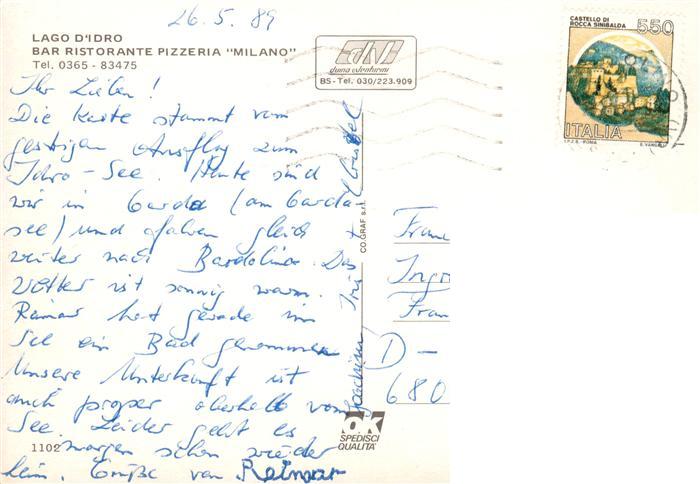 26.5.89
LAGO D'IDRO
BAR RISTORANTE PIZZERIA "MILANO"
Tel. 0365 - 83475
dv
BS-Tel. 030/223.909
CASTELLO DI
ROCCA SINIBALDA
550
ITALIA
I.P.Z.S. - ROMA
Ihr Lieben!
Die Karte stammt vom
gestrigen Ausflug zum
Idro-See. Heute sind
wir in Garda (am Garda
see) und fahren gleich
weiter nach Bardolino. Das
Wetter ist sonnig warm.
Reimar hat gerade im
See ein Bad genommen
Unsere Unterkunft ist
auch proper oberhalb vom
See. Leider geht es
morgen schon wieder
heim. Grüße von Reimar
Joachim Iris +
CO.GRAF. s.r.l.
Fran
Ingr
Fran
D-
680
1102
OK
SPEDISCI
QUALITÀ